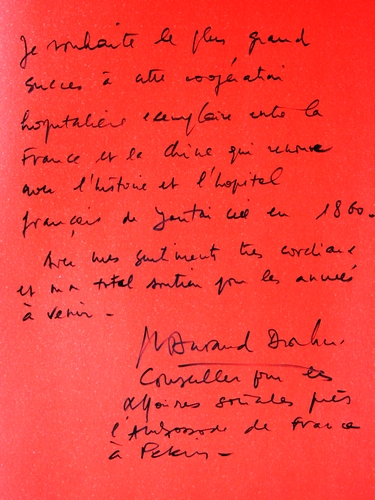 Je souhaite le plus grand
succès à cette coopération
hospitalière exemplaire entre la
France et la Chine qui renoue
avec l'histoire et l'hopital
français de Yantai créé en 1860.
Avec mes sentiments très cordiaux
et mon total soutien pour les années
à venir -
Durand
Conseiller pour les
affaires sociales près
l'Ambassade de France
à Pékin -